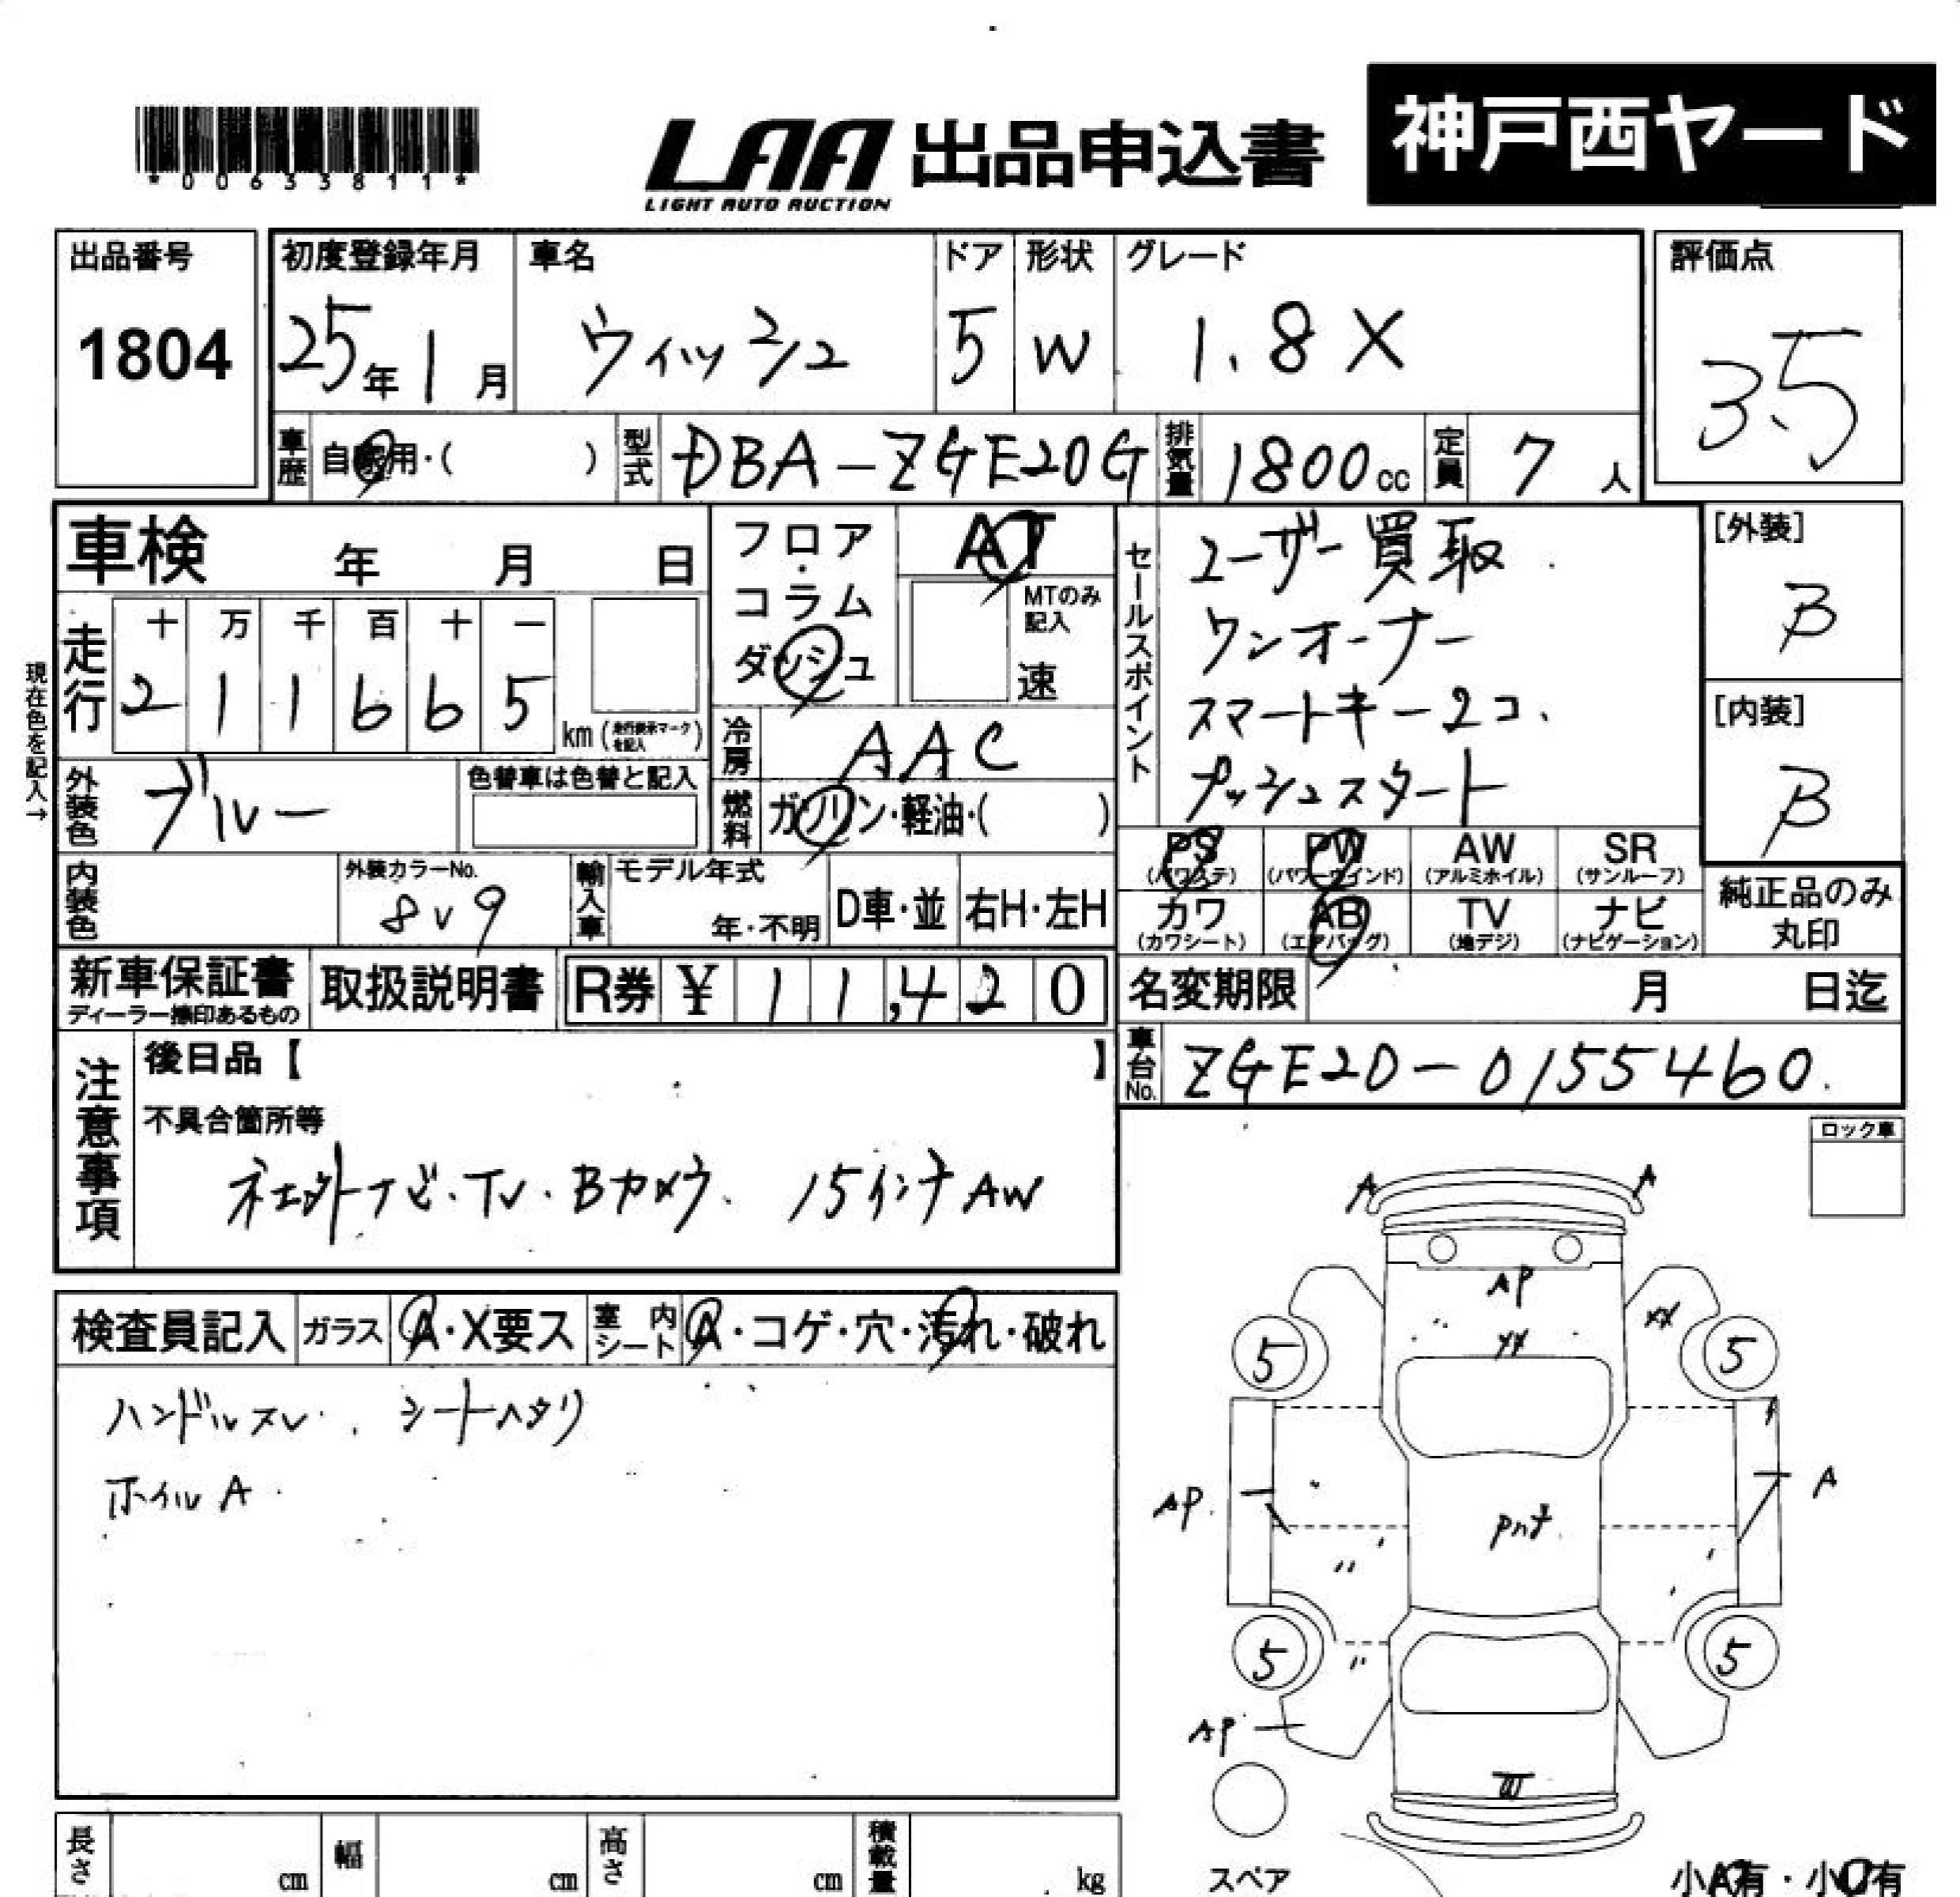 神戸西ヤード
*00633811*
LAA 出品申込書
LIGHT AUTO AUCTION
出品番号
1804
初度登録年月
25年1月
車名
ウィッシュ
ドア
5
形状
W
グレード
1.8X
評価点
3.5
車歴 自家用・( )
型式 DBA-ZGE20G
排気量 1800cc
定員 7人
車検 年 月 日
現在色を記入→
走行
十 万 千 百 十 一
2 1 1 6 6 5
km(走行表示マークを記入)
フロア・コラム
ダッシュ
AT
MTのみ記入
速
冷房 AAC
燃料 ガソリン・軽油・( )
セールスポイント
ユーザー買取
ワンオーナー
スマートキー2コ.
プッシュスタート
[外装]
B
[内装]
B
外装色 ブルー
色替車は色替と記入
内装色
外装カラーNo.
8V9
輸入車
モデル年式
年・不明
D車・並
右H・左H
PS (パワステ)
PW (パワーウインド)
AW (アルミホイル)
SR (サンルーフ)
カワ (カワシート)
AB (エアバッグ)
TV (地デジ)
ナビ (ナビゲーション)
純正品のみ
丸印
新車保証書
ディーラー捺印あるもの
取扱説明書
R券 ¥ 11,420
名変期限 月 日迄
車台No. ZGE20-0155460.
注意事項
後日品【 】
不具合箇所等
社外ナビ・TV・Bカメラ. 15インチAW
ロック車
検査員記入
ガラス A・X要ス
室内シート A・コゲ・穴・汚れ・破れ
ハンドルスレ. シートヘタリ
ホイルA
A A
AP
XX
XX
5 5
AP
A
Pnt
5 5
AP
スペア
小A有・小U有
長さ cm
幅 cm
高さ cm
積載量 kg